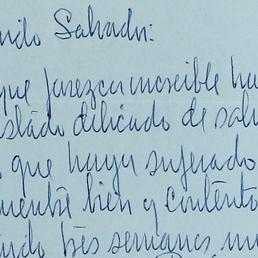 rido Salvador:
que parezca increible ha
estado delicado de sal
que haya superado
cuentre bien y contento
ndo tres semanas mu